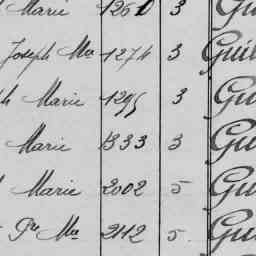 Marie 1261 3 Gu
Joseph Mie 1274 3 Guil
h Marie 1295 3 Gu
Marie 1333 3 Gu
Marie 2002 5 Gu
Pre Mie 2112 5 Gu